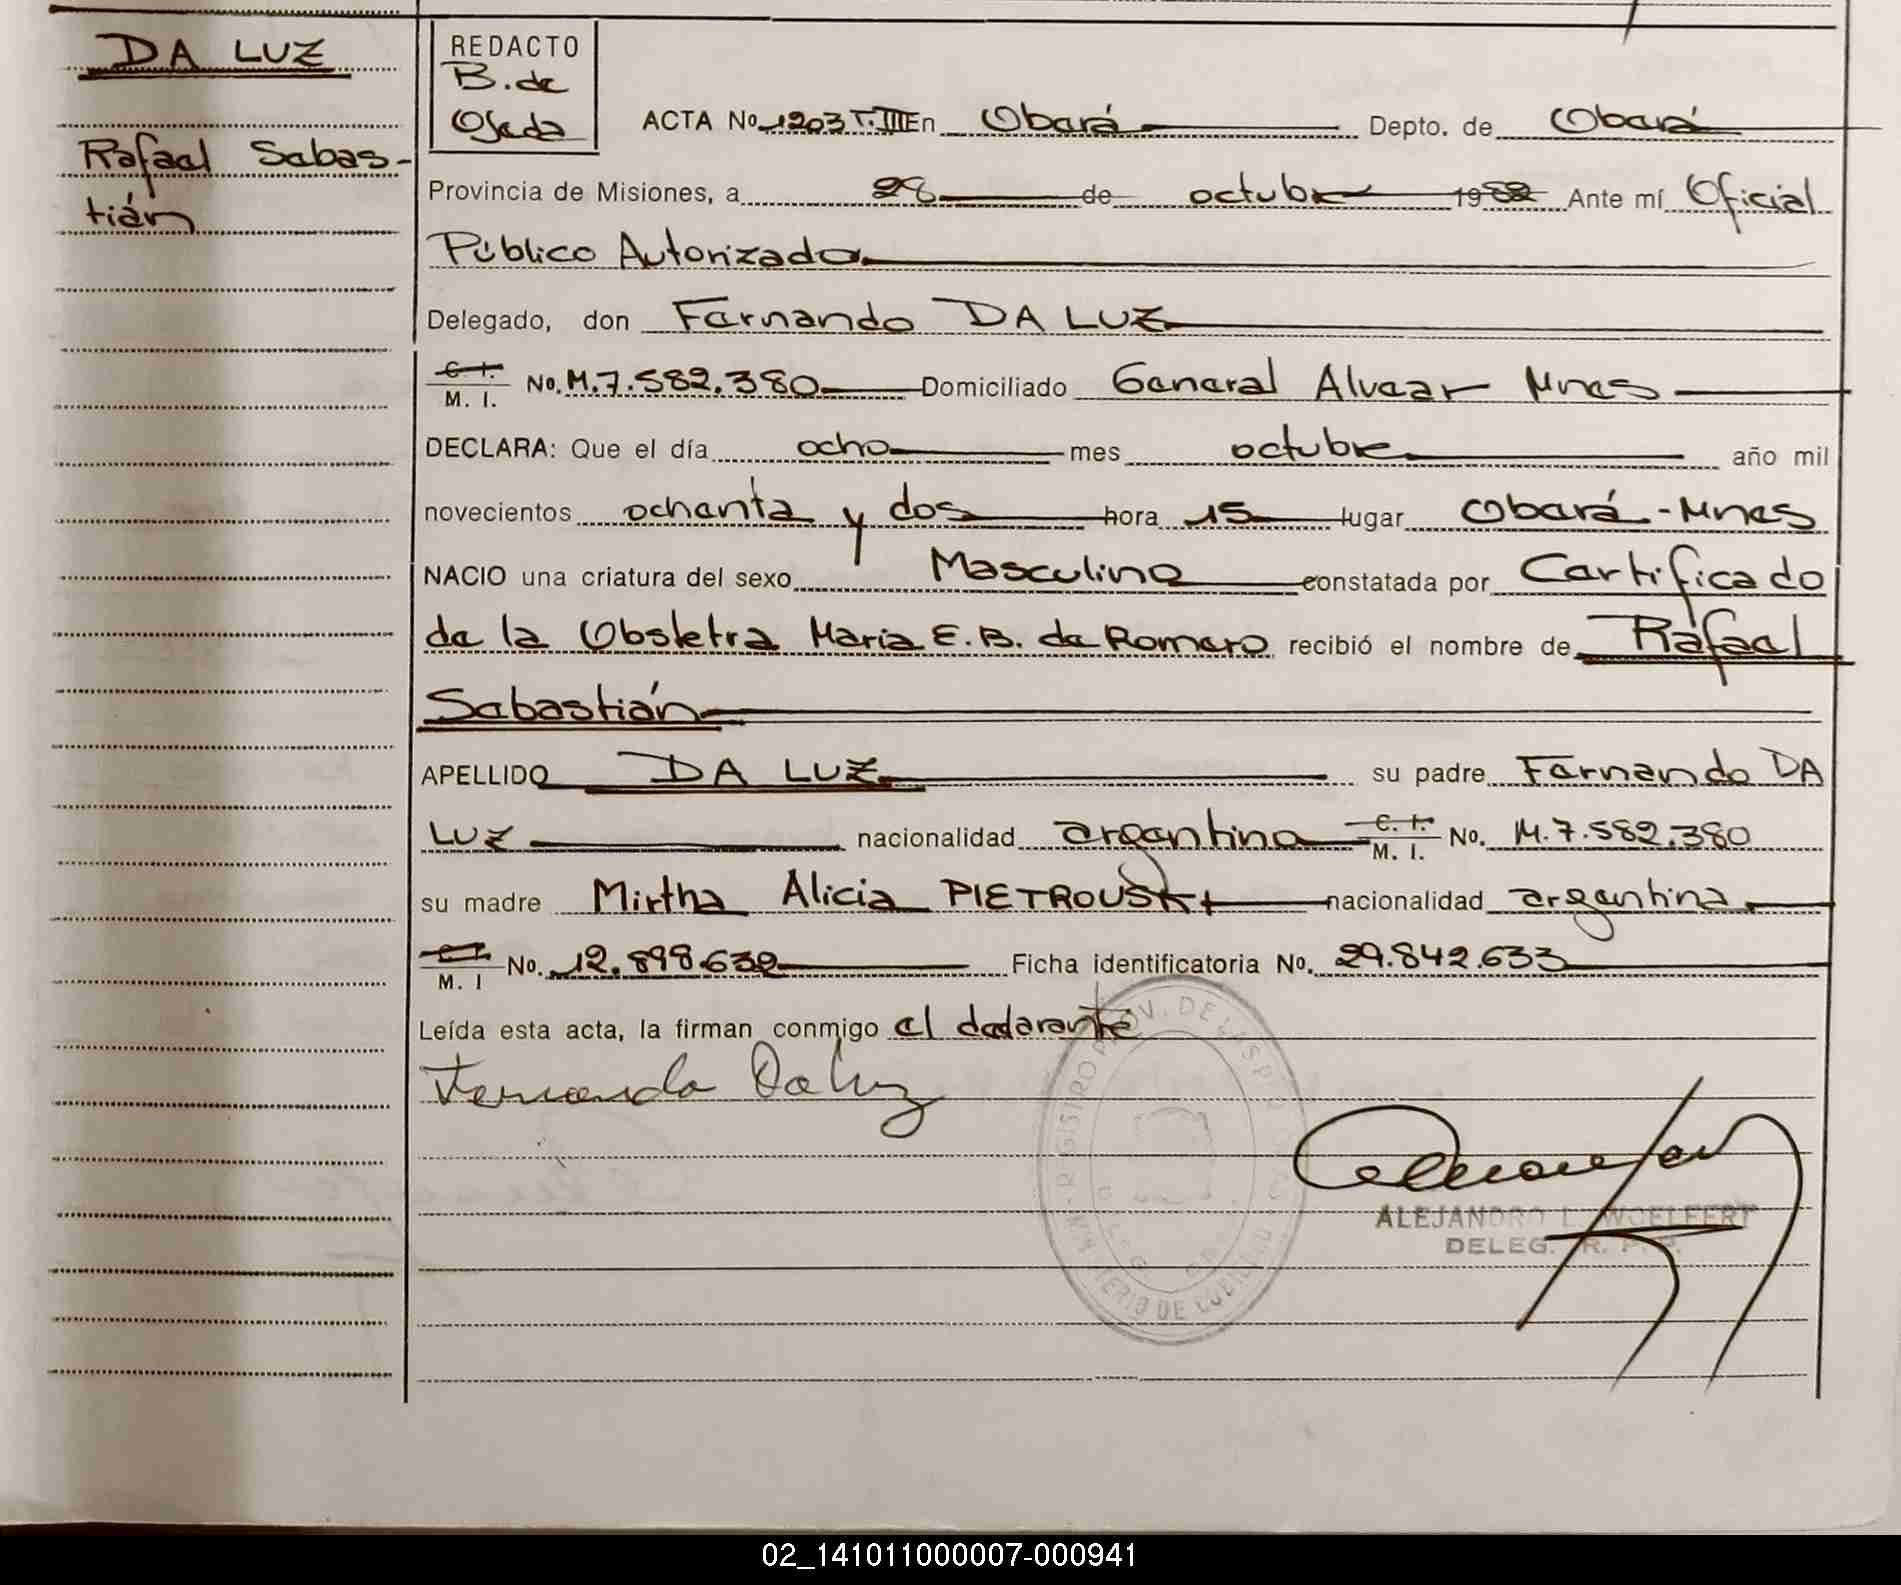 DA LUZ
Rafael Sebas-
tián
REDACTO
B. de
Ojeda
ACTA No 1203 T.III En Oberá Depto. de Oberá
Provincia de Misiones, a 28 de octubre 1982 Ante mí Oficial
Público Autorizado
Delegado, don Fernando DA LUZ
C. I.
M. I. No. M.7.582.380 Domiciliado General Alvear Mnes
DECLARA: Que el día ocho mes octubre año mil
novecientos ochenta y dos hora 15 lugar Oberá - Mnes
NACIO una criatura del sexo Masculino constatada por Certificado
de la Obstetra Maria E. B. de Romero recibió el nombre de Rafael
Sebastián
APELLIDO DA LUZ su padre Fernando DA
LUZ nacionalidad argentina C. I. M. I. No. M.7.582.380
su madre Mirtha Alicia PIETROUSKI nacionalidad argentina
C. I.
M. I No. 12.898.632 Ficha identificatoria No. 29.842.633
Leída esta acta, la firman conmigo el declarante
Fernando Da Luz
REGISTRO PROV. DE LAS PERSONAS
MINISTERIO DE GOBIERNO
ALEJANDRO L. WOELFERT
DELEG. R. P. P.
02_141011000007-000941